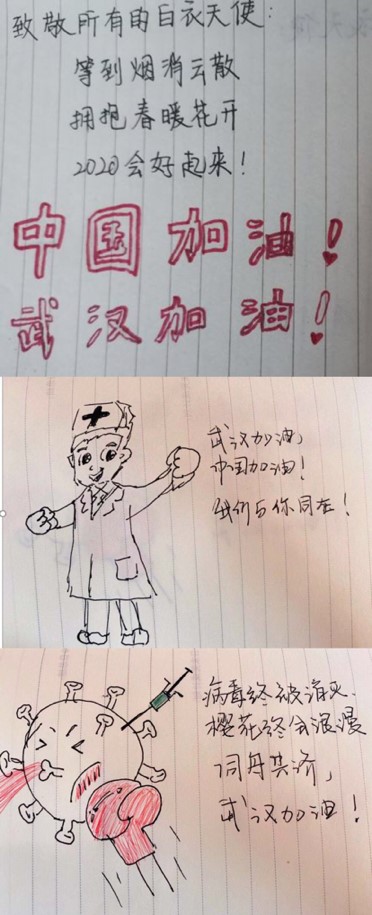 致敬所有的白衣天使：
等到烟消云散
拥抱春暖花开
2020会好起来！
中国加油！
武汉加油！
武汉加油，
中国加油！
我们与你同在！
病毒终被消灭．
樱花终会浪漫
同舟共济，
武汉加油！